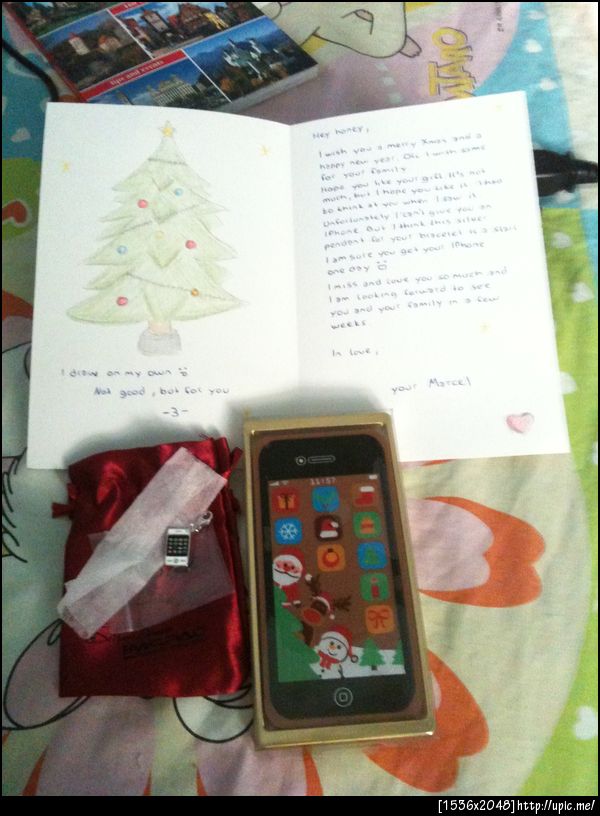 tips and events
Hey honey,
I wish you a merry Xmas and a
happy new year. Oh, I wish same
for your family.
Hope you like your gift. It's not
much, but I hope you like it. I had
to think at you when I saw it.
Unfortunately I can't give you an
iPhone. But I think this silver
pendant for your bracelet is a start
I am sure you get your iPhone
one day
I miss and love you so much and
I am looking forward to see
you and your family in a few
weeks.
In love,
your Marcel
I draw on my own
Not good, but for you
-3-
11:57
[1536x2048]http://upic.me/